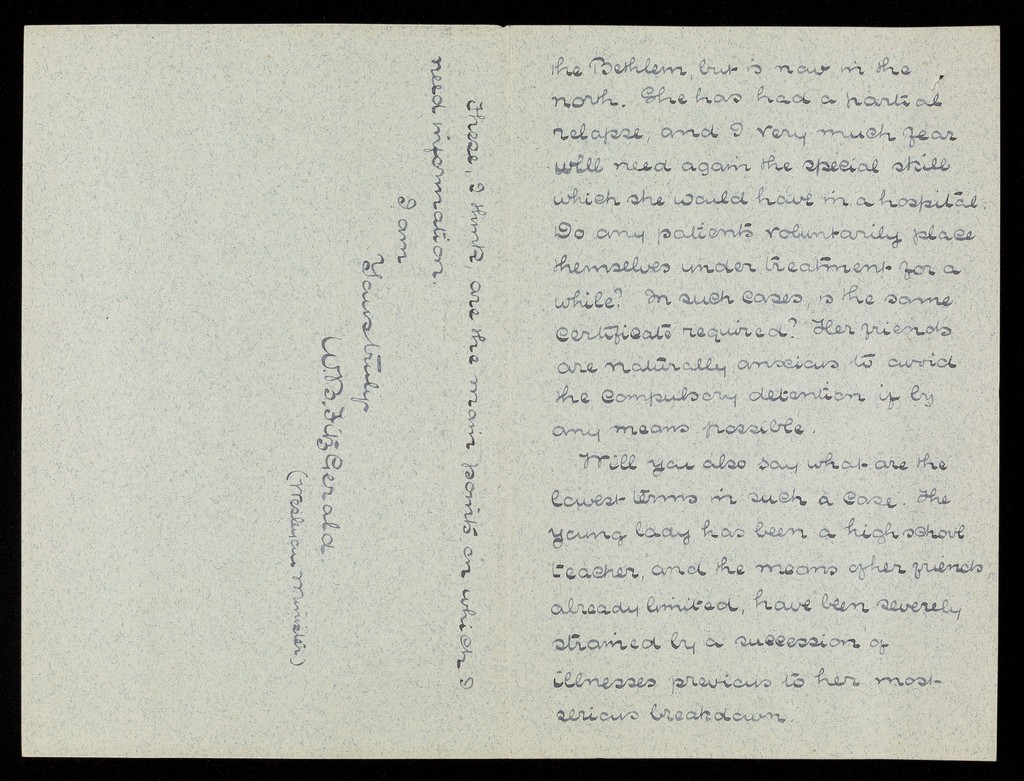 the Bethlem, but is now in the
north. She has had a partial
relapse, and I very much fear
will need again the special skill
which she would have in a hospital.
Do any patients voluntarily place
themselves under treatment for a
while? In such cases, is the same
certificate required? Her friends
are naturally anxious to avoid
the compulsory detention if by
any means possible.
Will you also say what are the
lowest terms in such a case. The
young lady has been a high school
teacher, and the means of her friends,
already limited, have been severely
strained by a succession of
illnesses previous to her most
serious breakdown.
These, I think, are the main points on which I
need information.
I am
Yours truly
W. B. FitzGerald.
(Wesleyan Minister)